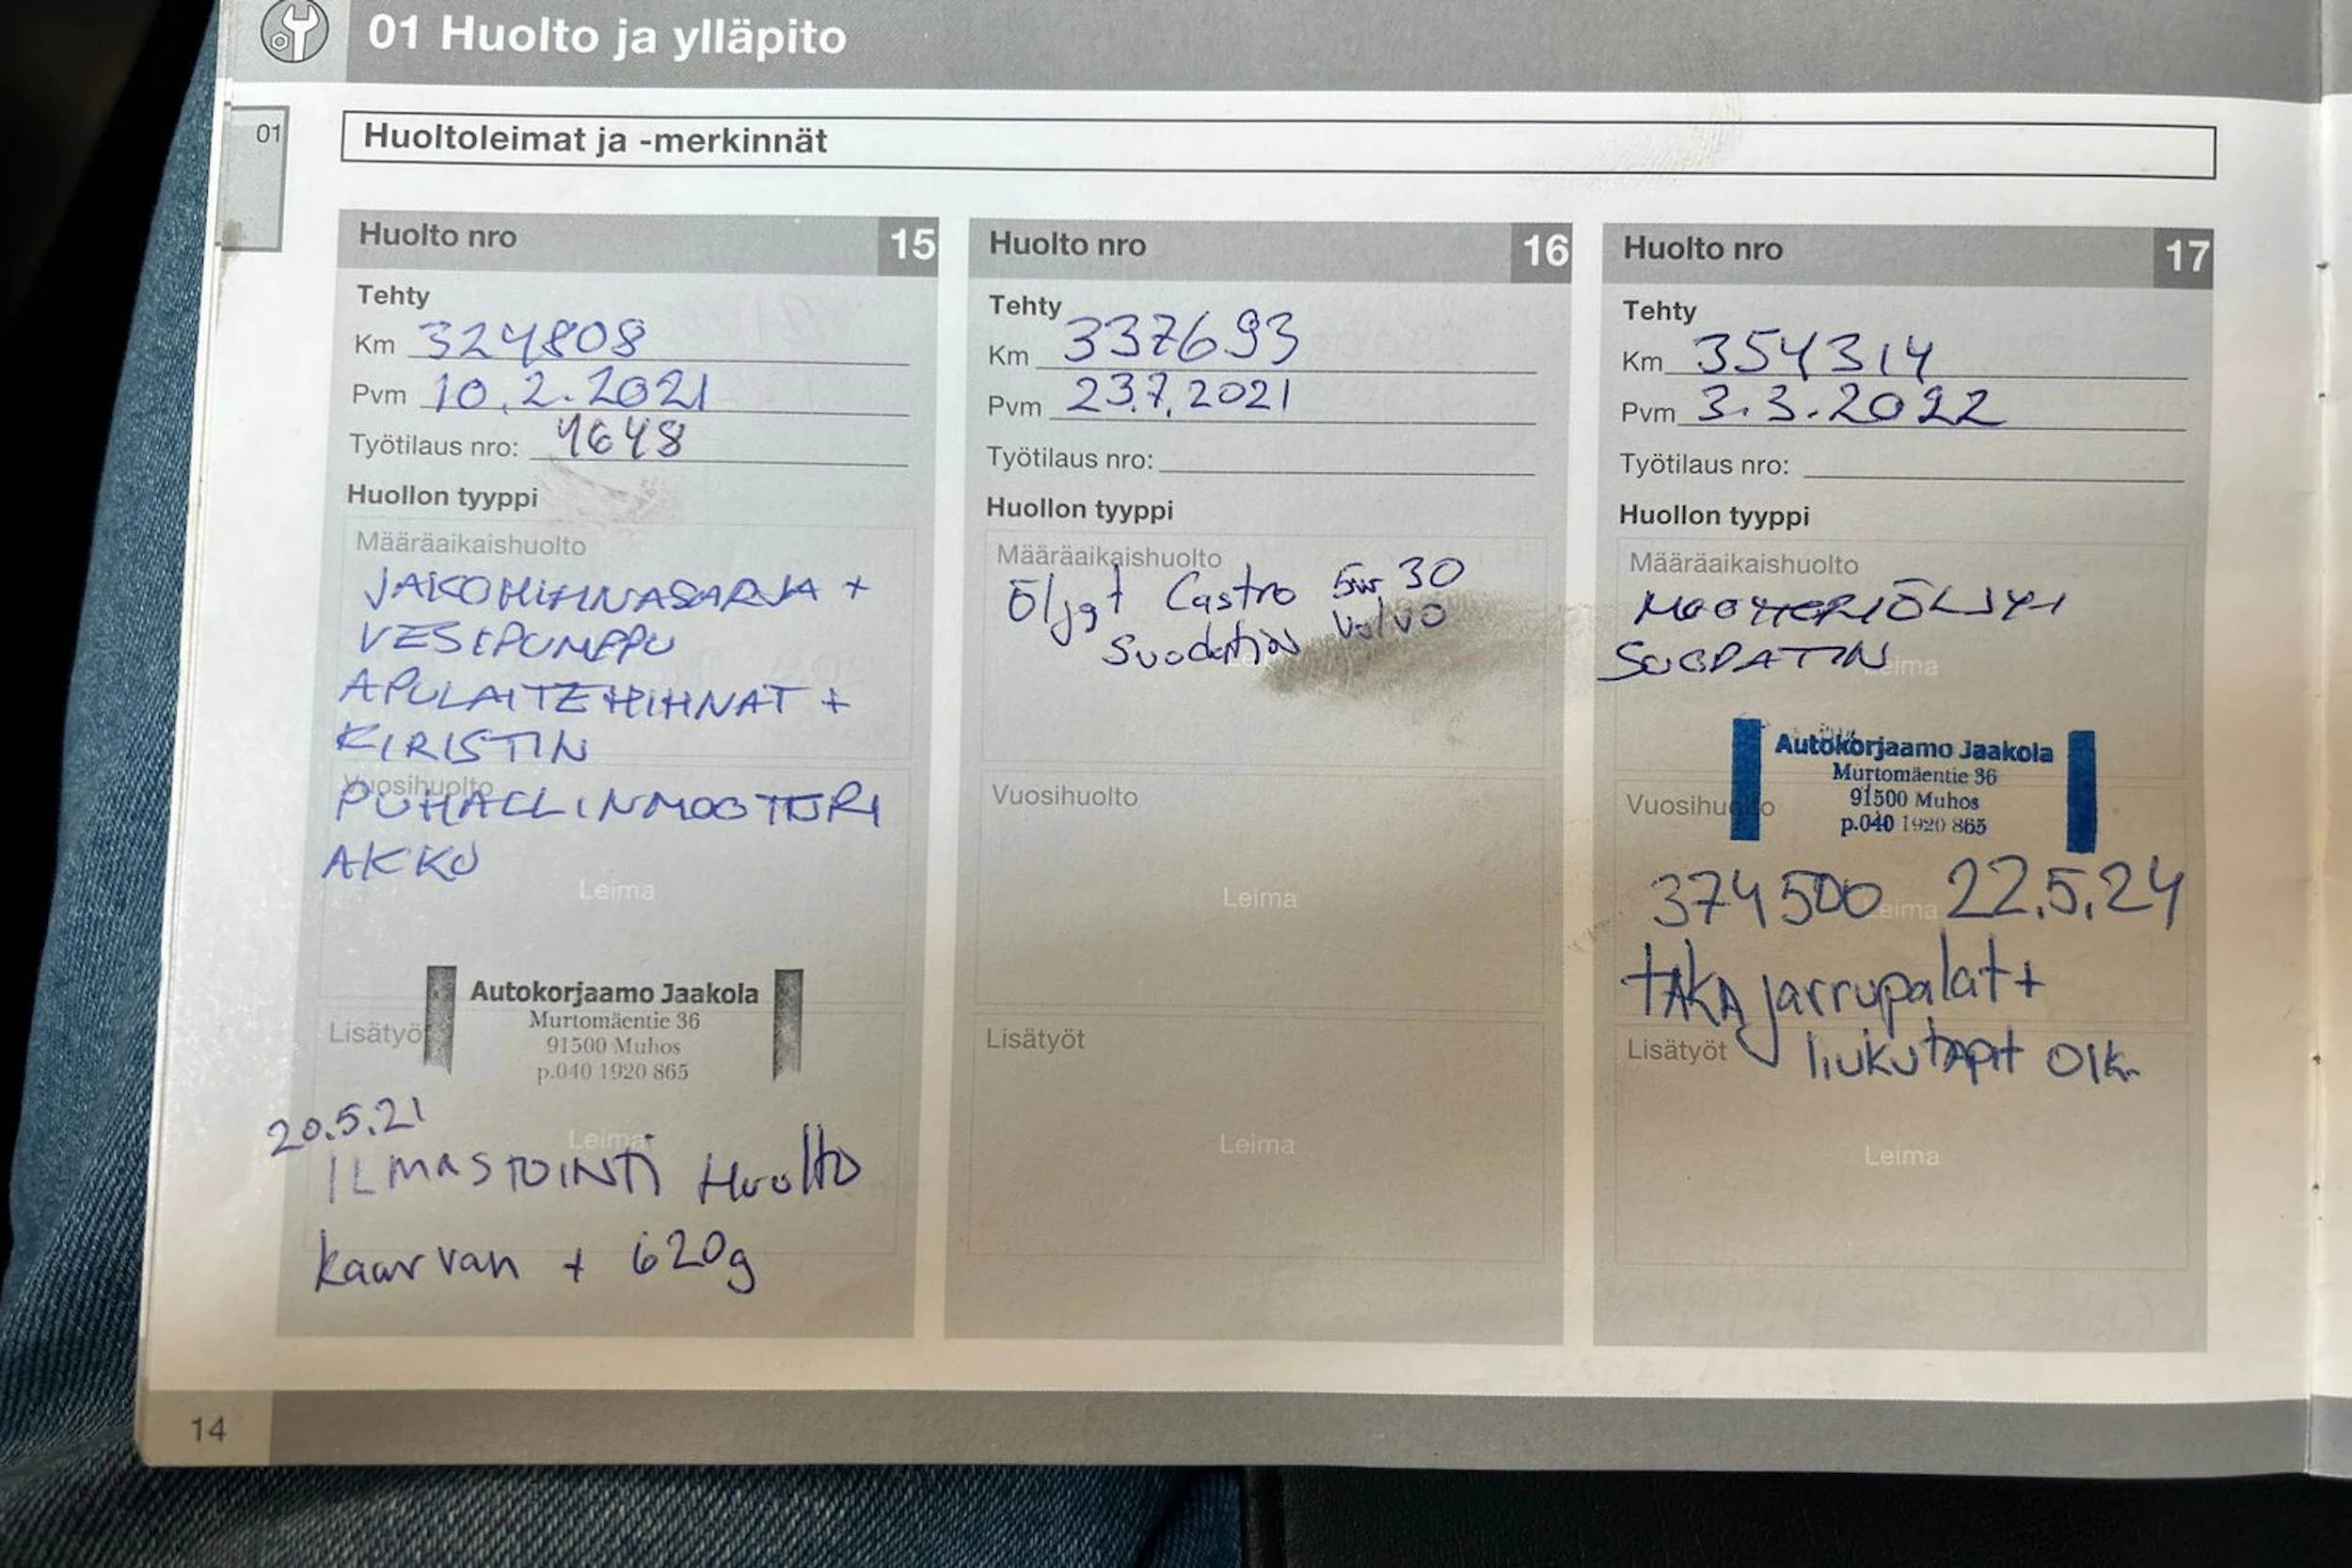 01 Huolto ja ylläpito
01
Huoltoleimat ja -merkinnät
Huolto nro 15
Tehty
Km 324808
Pvm 10.2.2021
Työtilaus nro: 1648
Huollon tyyppi
Määräaikaishuolto
JAKOHIHNASARJA +
VESIPUMPPU
APULAITEHIHNAT +
KIRISTIN
Vuosihuolto
PUHALLINMOOTTORI
AKKU
Leima
Autokorjaamo Jaakola
Murtomäentie 36
91500 Muhos
p.040 1920 865
Lisätyöt
20.5.21
Leima
ILMASTOINTI Huolto
kaasvan + 620g
Huolto nro 16
Tehty
Km 337693
Pvm 23.7.2021
Työtilaus nro:
Huollon tyyppi
Määräaikaishuolto
Öljyt Castro 5w 30
Suodatin Volvo
Vuosihuolto
Leima
Lisätyöt
Leima
Huolto nro 17
Tehty
Km 354314
Pvm 3.3.2022
Työtilaus nro:
Huollon tyyppi
Määräaikaishuolto
MOOTTERIÖLJYT
SUODATIN
Leima
Autokorjaamo Jaakola
Murtomäentie 36
91500 Muhos
p.040 1920 865
Vuosihuolto
374500 22.5.24
Leima
TAKA jarrupalat +
Lisätyöt
liukutapit OK.
Leima
14